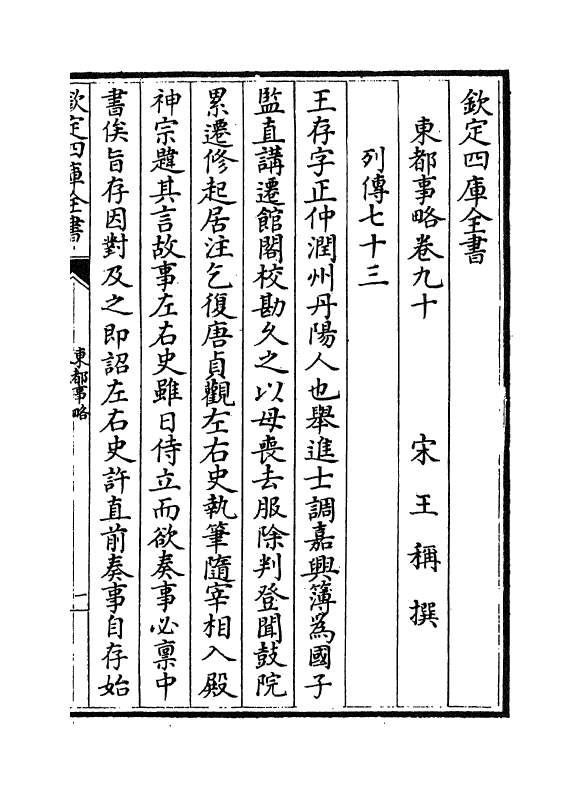 欽定四庫全書
東都事略卷九十　宋王稱撰
列傳七十三
王存字正仲潤州丹陽人也舉進士調嘉興簿為國子
監直講遷館閣校勘久之以母喪去服除判登聞鼓院
累遷修起居注乞復唐貞觀左右史執筆隨宰相入殿
神宗韙其言故事左右史雖日侍立而欲奏事必稟中
書俟旨存因對及之即詔左右史許直前奏事自存始
欽定四庫全書
東都事略
一